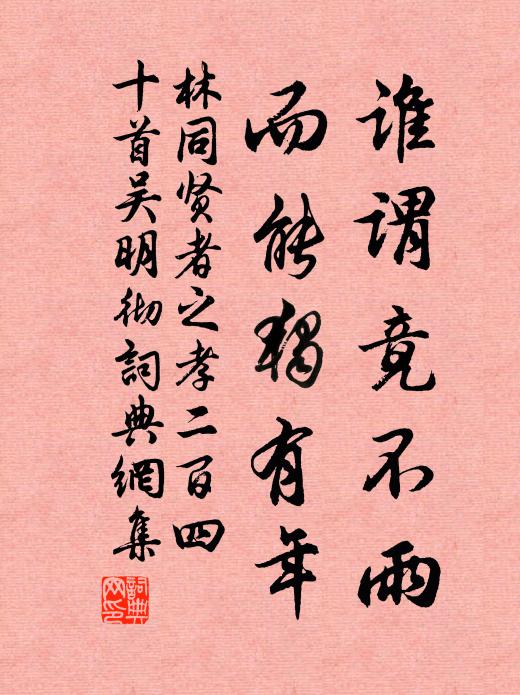 谁謂竟不雨
而能獨有年
林同贤者之孝二百四
十首吴明彻詞典網集
詞典網印